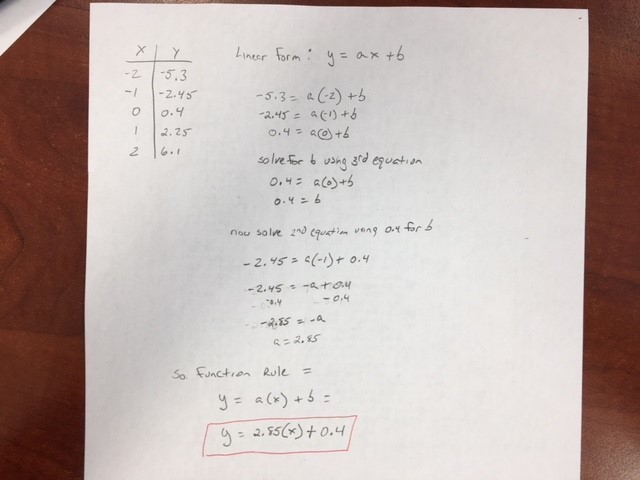 x | y
-2 | -5.3
-1 | -2.45
0 | 0.4
1 | 2.25
2 | 6.1
Linear Form: y = ax + b
-5.3 = a(-2) + b
-2.45 = a(-1) + b
0.4 = a(0) + b
solve for b using 3rd equation
0.4 = a(0) + b
0.4 = b
now solve 2nd equation using 0.4 for b
-2.45 = a(-1) + 0.4
-2.45 = -a + 0.4
-0.4 -0.4
-2.85 = -a
a = 2.85
So Function Rule =
y = a(x) + b =
y = 2.85(x) + 0.4